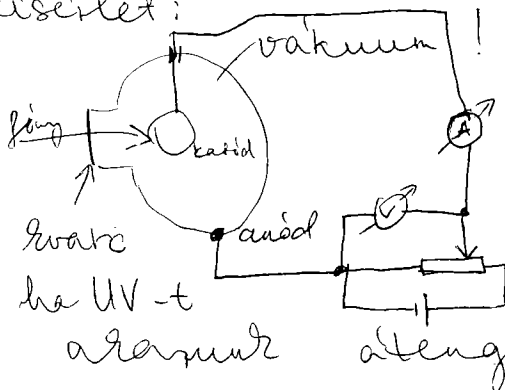 kísérlet:
vákuum !
fény
katód
A
V
anód
kvarc
ha UV-t
akarunk áteng